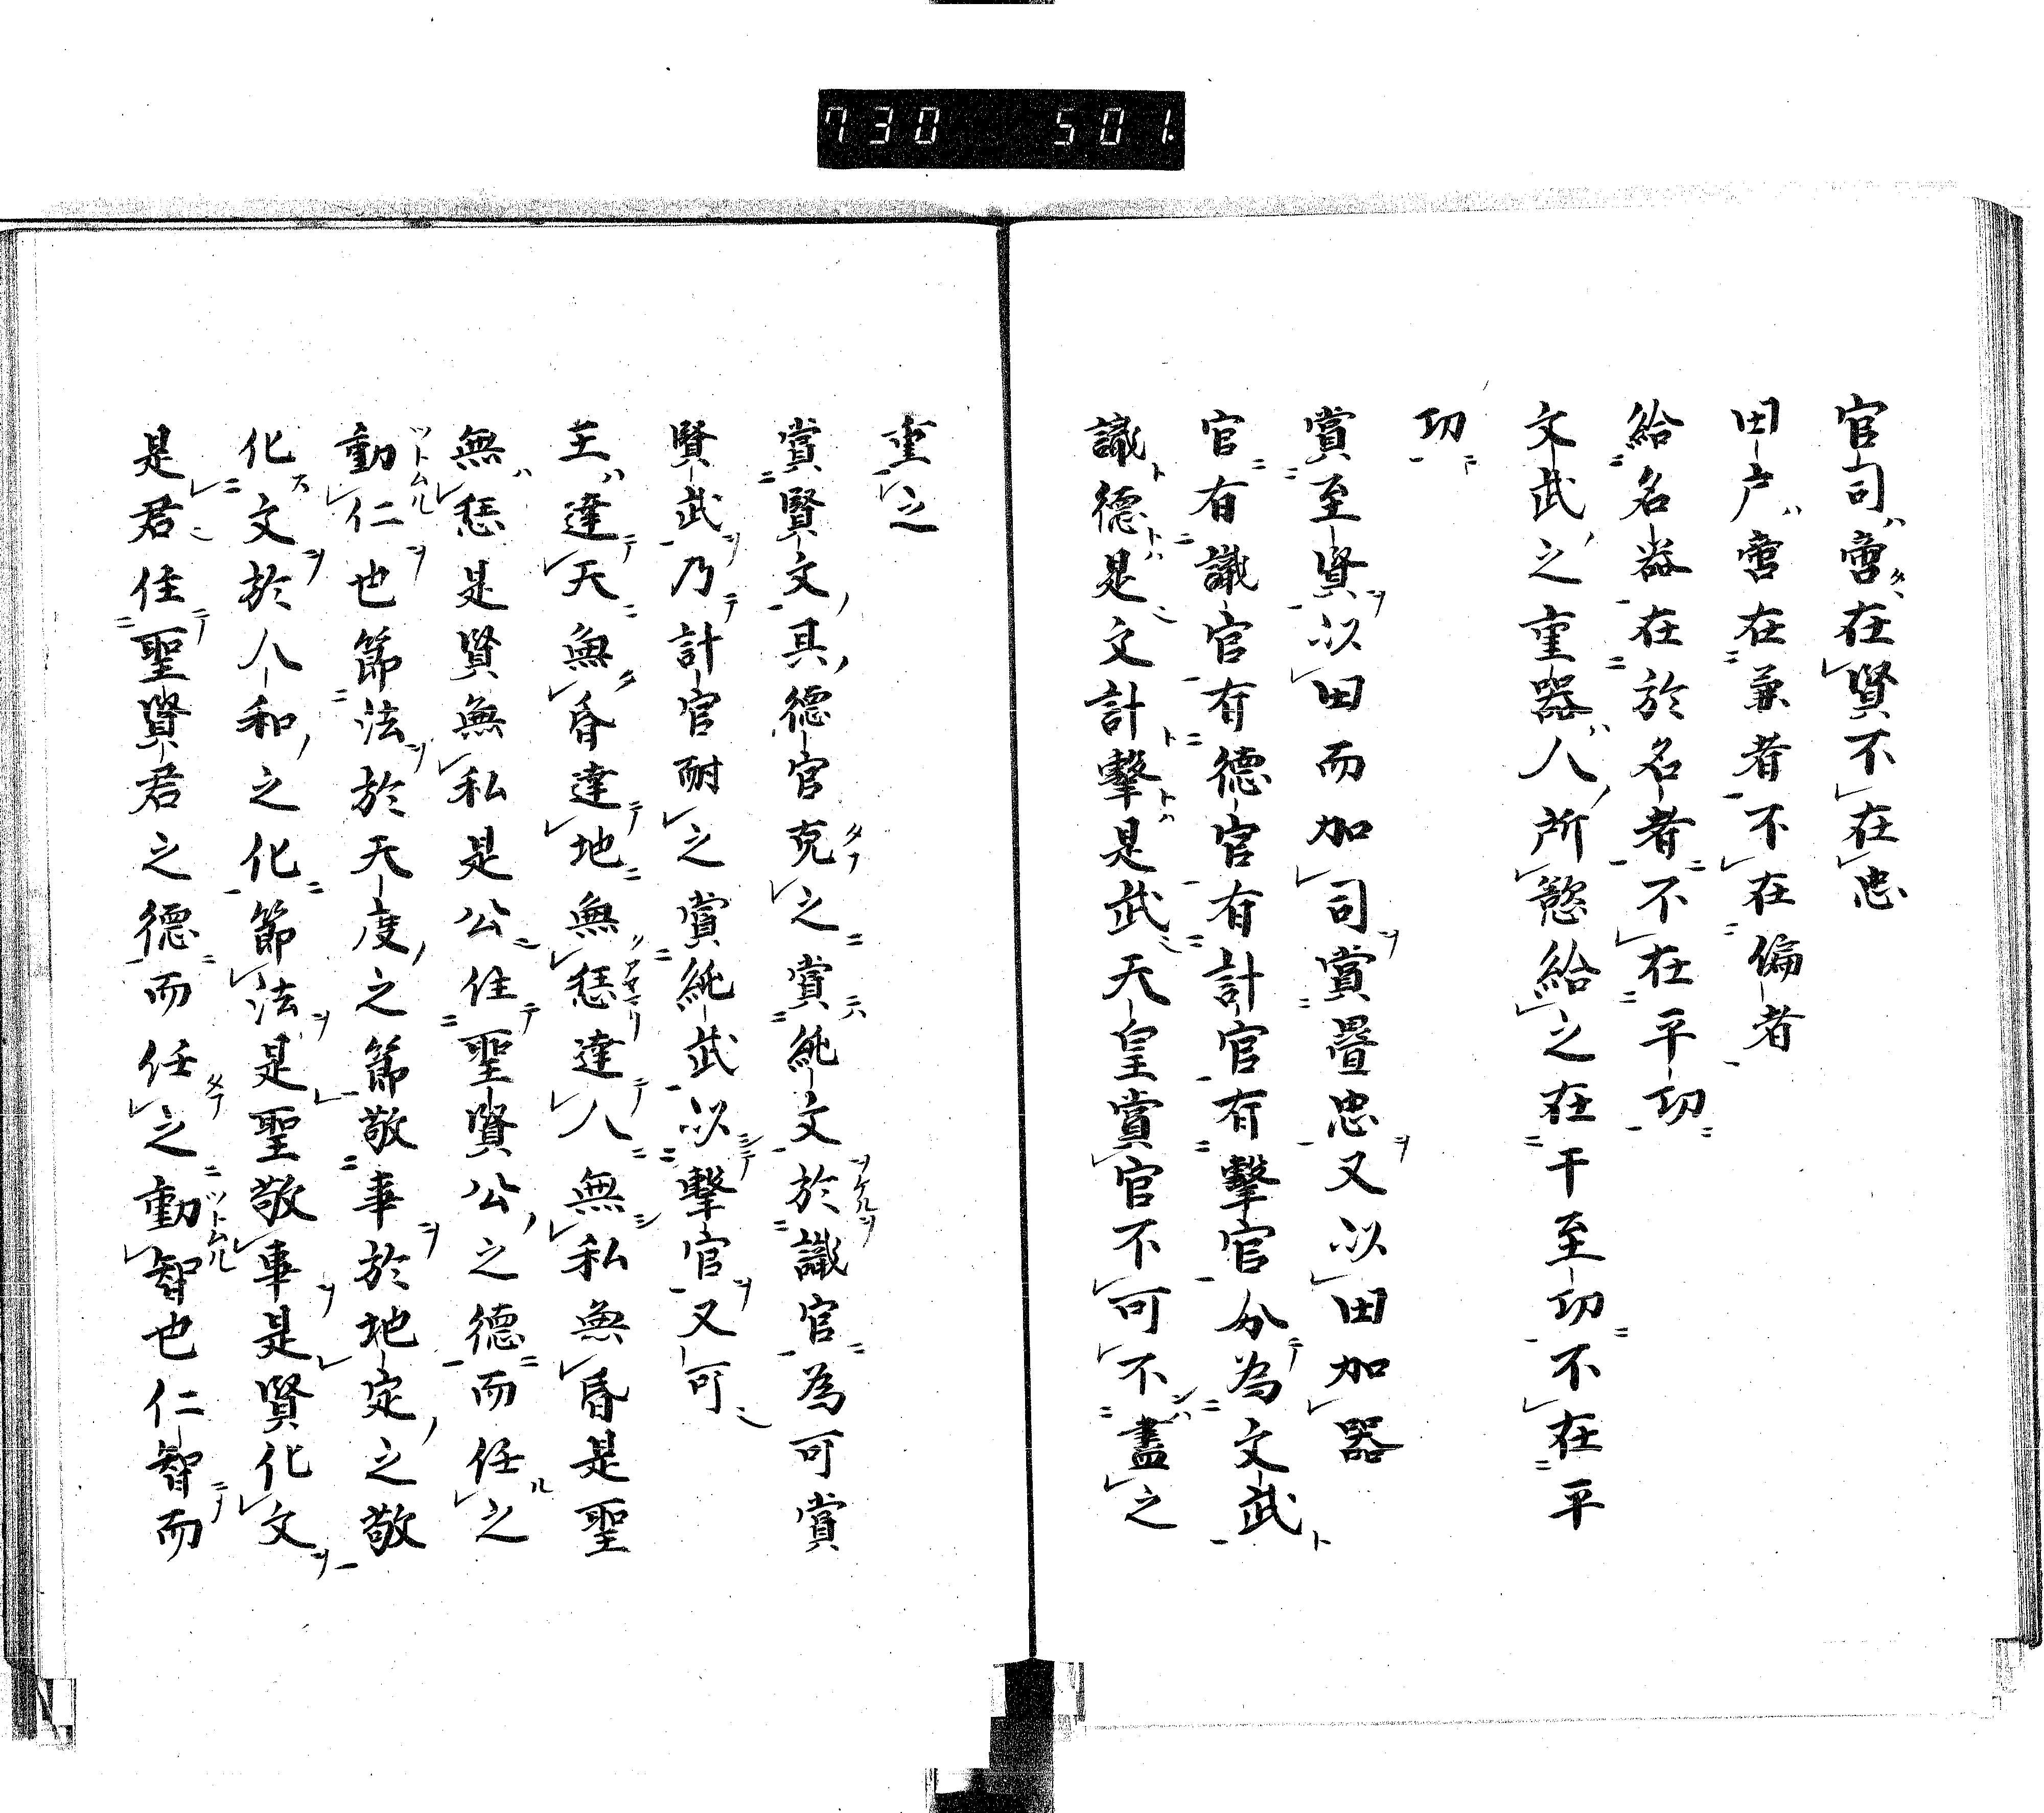 730 501.
官司啻在賢不在忠
田戸啻在兼者不在偏者
給名器在於名者不在平功
文武之重器人所慾給之在干至功不在平
功
賞至賢以田而加司賞疊忠又以田加器
官有識官有德官有計官有擊官分為文武
識德是文計擊是武天皇賞官不可不盡之
重之
賞賢文其德官克之賞純文於識官為可賞
賢武乃計官耐之賞純武以擊官又可
王達天無昏達地無愆達人無私無昏是聖
無愆是賢無私是公住聖賢公之德而任之
動仁也節法於天度之節敬事於地定之敬
化文於人和之化節法是聖敬事是賢化文
是君住聖賢君之德而任之動智也仁智而